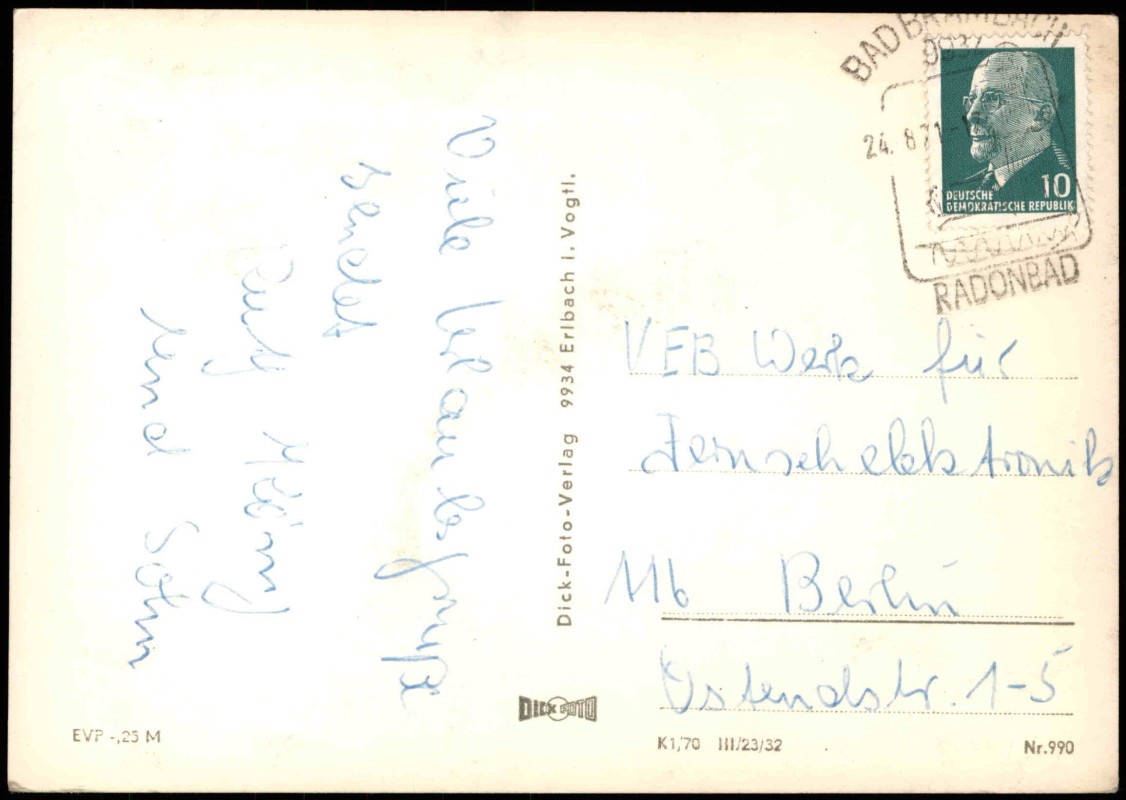 Viele Urlaubsgrüße
sendet
und Sohn
Dick-Foto-Verlag 9934 Erlbach i. Vogtl.
BAD BRAMBACH
993
24. 8. 71-1
RADONBAD
10
DEUTSCHE
DEMOKRATISCHE REPUBLIK
VEB Werk für
Fernsehelektronik
116 Berlin
Ostendstr. 1-5
DICK FOTO
EVP -,25 M
K1/70 III/23/32
Nr. 990